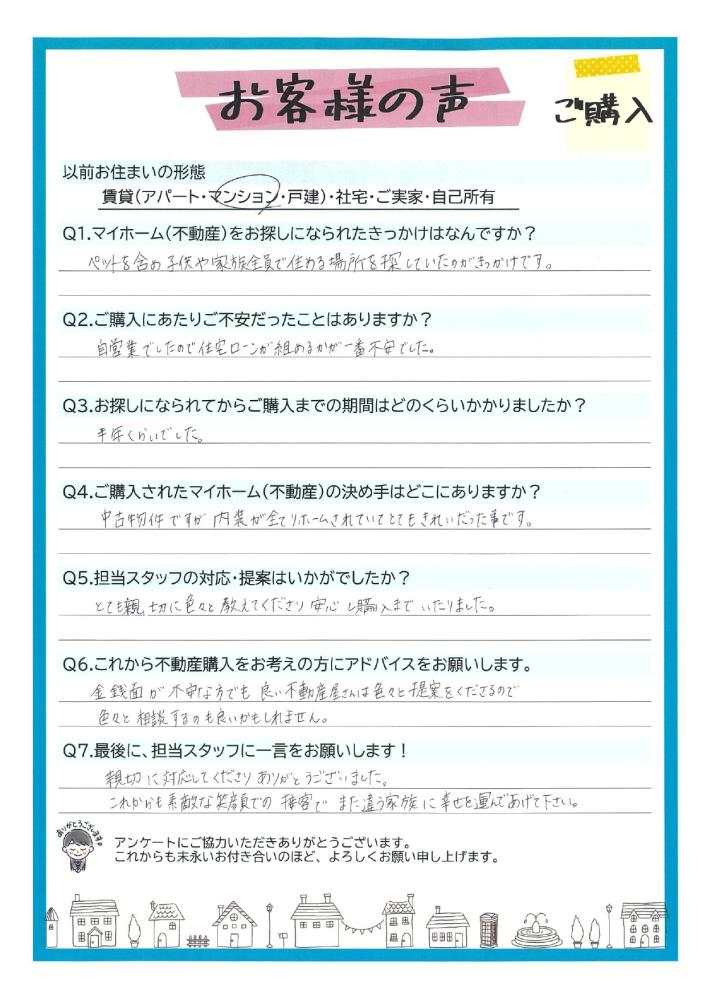 お客様の声
ご購入
以前お住まいの形態
賃貸(アパート・マンション・戸建)・社宅・ご実家・自己所有
Q1.マイホーム(不動産)をお探しになられたきっかけはなんですか?
ペットを含め子供や家族全員で住める場所を探していたのがきっかけです。
Q2.ご購入にあたりご不安だったことはありますか?
自営業でしたので住宅ローンが組めるかが一番不安でした。
Q3.お探しになられてからご購入までの期間はどのくらいかかりましたか?
半年くらいでした。
Q4.ご購入されたマイホーム(不動産)の決め手はどこにありますか?
中古物件ですが内装が全てリホームされていてとてもきれいだった事です。
Q5.担当スタッフの対応・提案はいかがでしたか?
とても親切に色々と教えてくださり安心し購入までいたりました。
Q6.これから不動産購入をお考えの方にアドバイスをお願いします。
金銭面が不安な方でも良い不動産屋さんは色々と提案をくださるので
色々と相談するのも良いかもしれません。
Q7.最後に、担当スタッフに一言をお願いします!
親切に対応してくださりありがとうございました。
これからも素敵な笑顔での接客でまた違う家族に幸せを運んであげて下さい。
ありがとうございます。
アンケートにご協力いただきありがとうございます。
これからも末永いお付き合いのほど、よろしくお願い申し上げます。